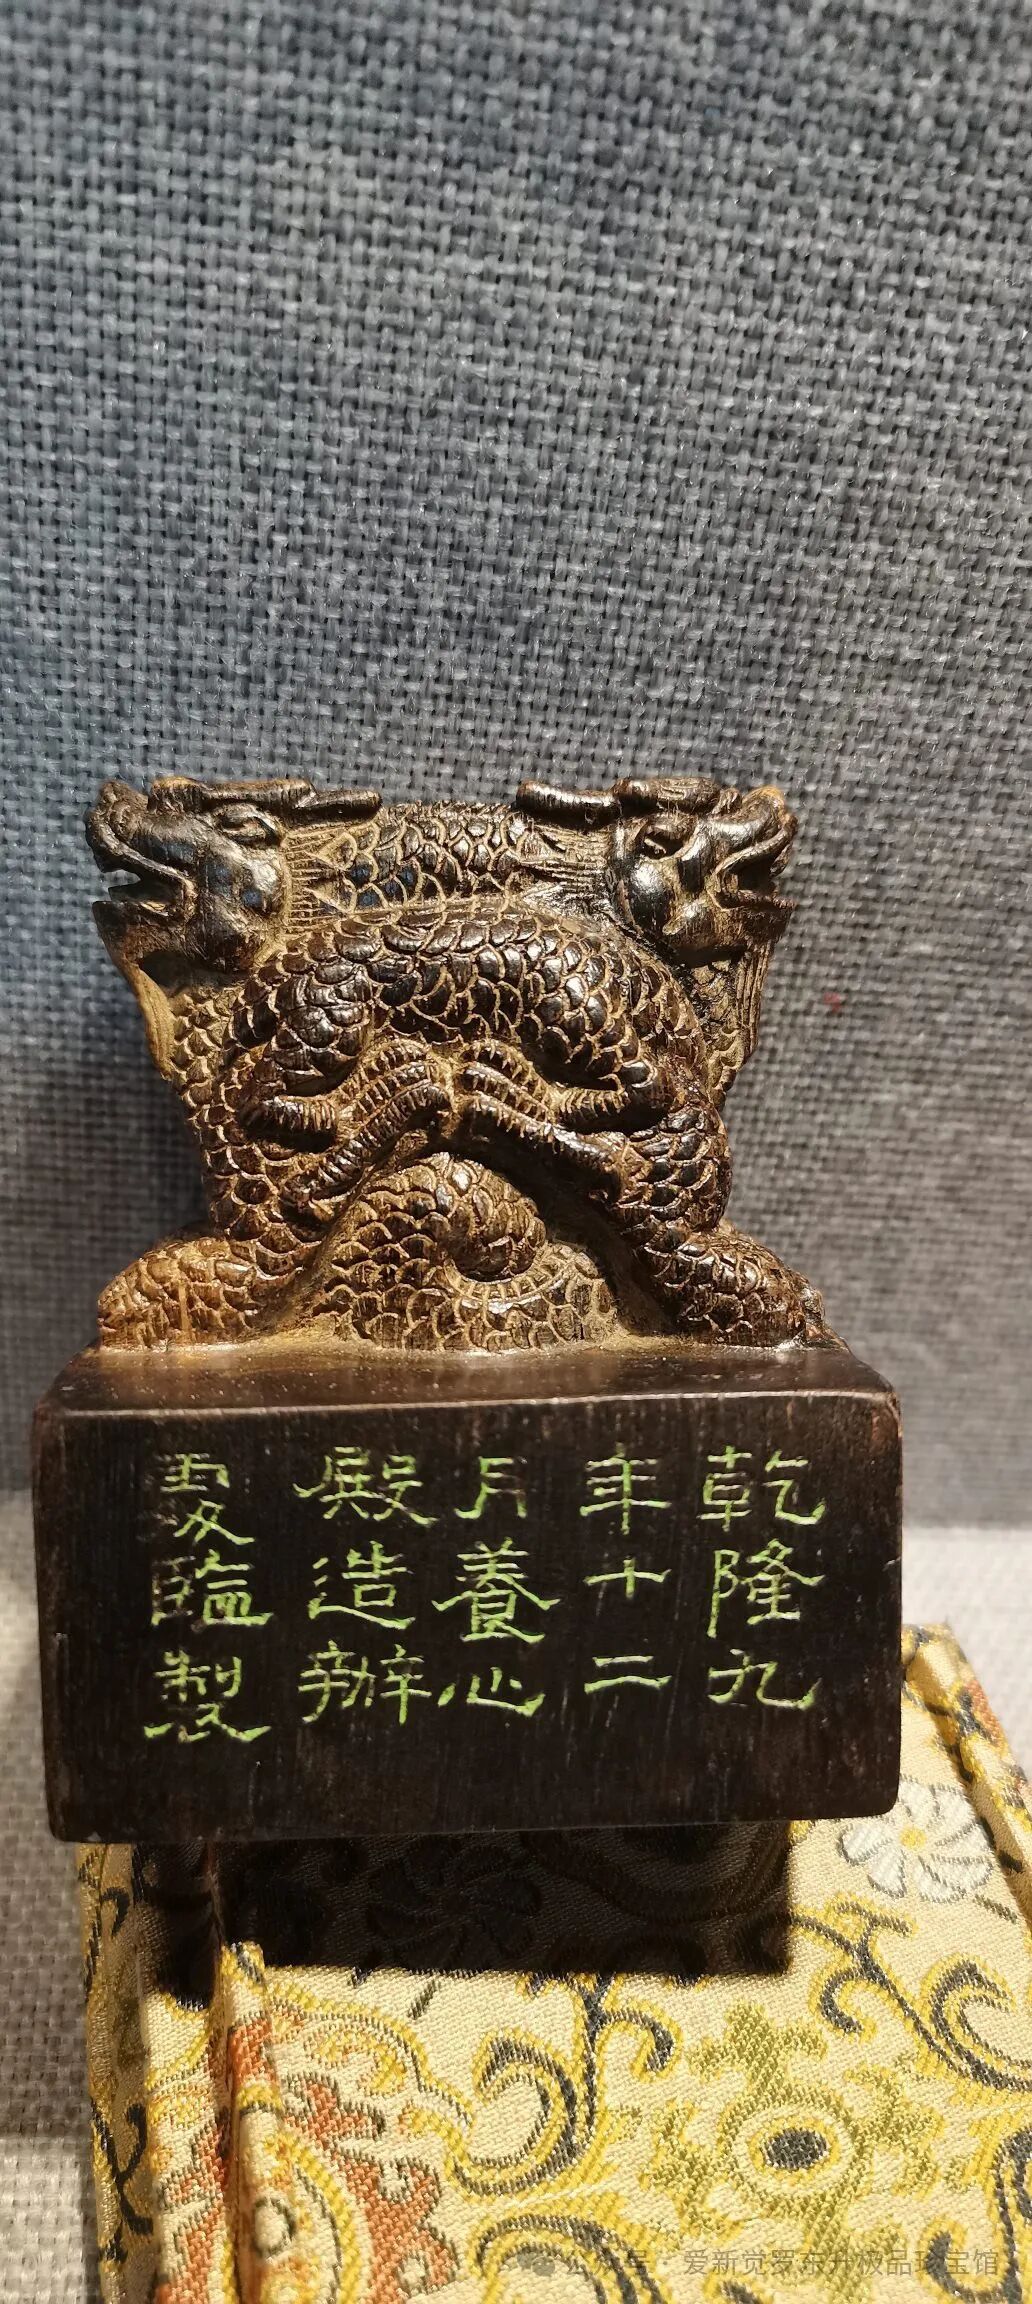 乾隆九
年十二
月養心
殿造辦
臨製
公众号 · 爱新觉罗东升极品珍宝馆